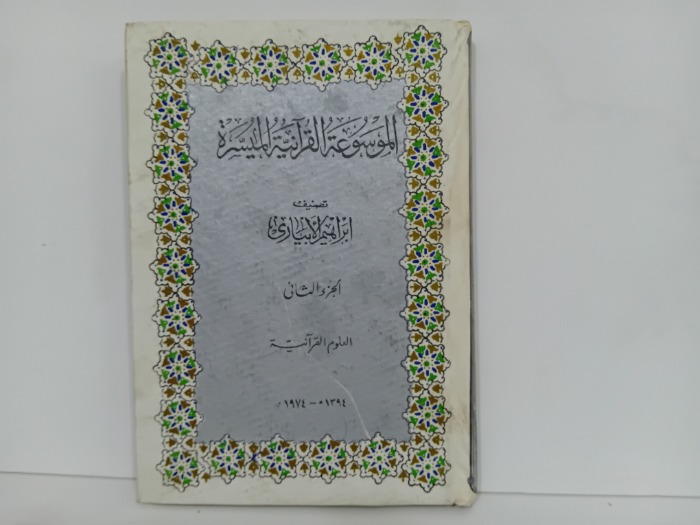 الموسوعة القرآنية الميسرة
تصنيف
ابراهيم الأبيارى
الجزء الثانى
العلوم القرآنية
١٣٩٤ه – ١٩٧٤م